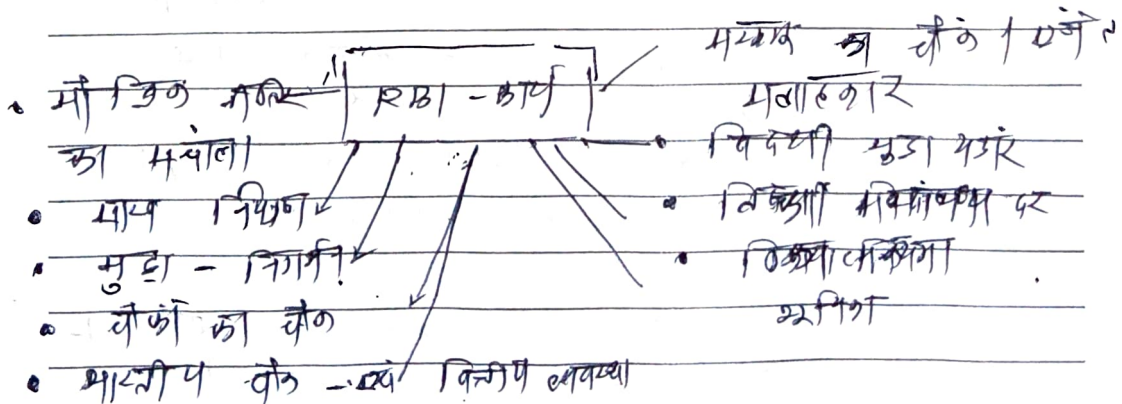 • मौद्रिक नीति
का संचालन
• साख नियंत्रण
• मुद्रा - निर्गमन
• बैंकों का बैंक
• भारतीय बैंक - एवं वित्तीय व्यवस्था
RBI - कार्य
सरकार का बैंक / एजेंट
सलाहकार
• विदेशी मुद्रा भंडार
• विदेशी विनिमय दर
• भूमिका